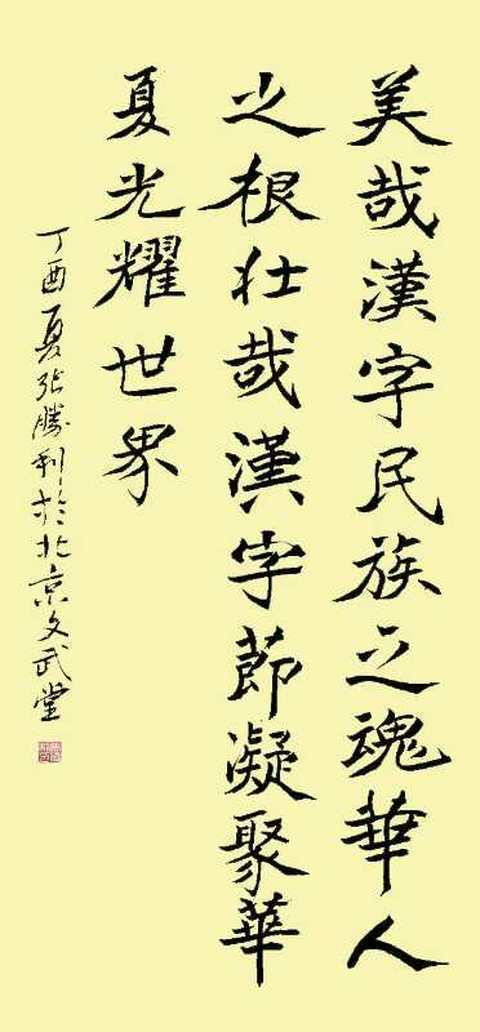 美哉漢字民族之魂華人
之根壯哉漢字節凝聚華
夏光耀世界
丁酉夏張勝利於北京文武堂